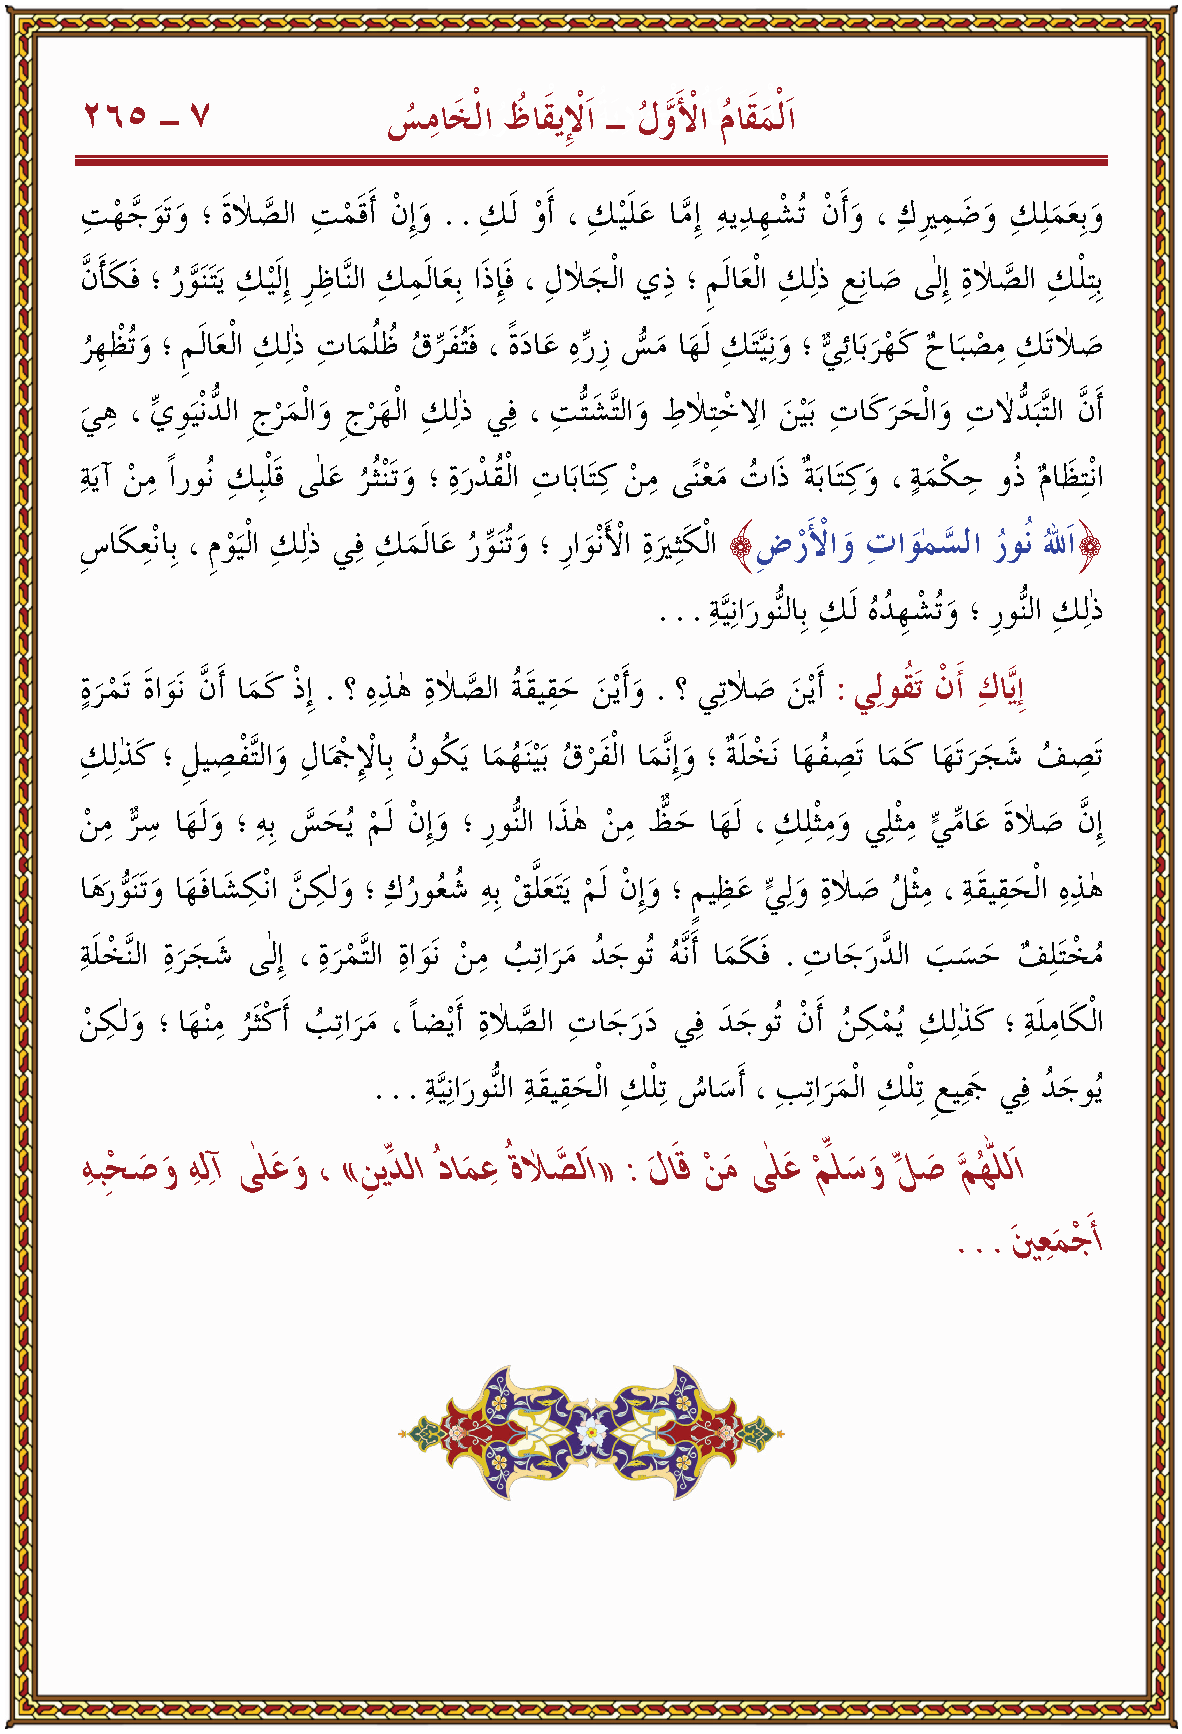 اَلْمَقَامُ الْأَوَّلُ – اَلْإِيقَاظُ الْخَامِسُ ٧ – ٢٦٥
وَبِعَمَلِكِ وَضَمِيرِكِ ، وَأَنْ تُشْهِدِيهِ إِمَّا عَلَيْكِ ، أَوْ لَكِ . . وَإِنْ أَقَمْتِ الصَّلٰاةَ ؛ وَتَوَجَّهْتِ
بِتِلْكِ الصَّلٰاةِ إِلٰى صَانِعِ ذٰلِكِ الْعَالَمِ ؛ ذِي الْجَلٰالِ ، فَإِذَا بِعَالَمِكِ النَّاظِرِ إِلَيْكِ يَتَنَوَّرُ ؛ فَكَأَنَّ
صَلٰاتَكِ مِصْبَاحٌ كَهْرَبَائِيٌّ ؛ وَنِيَّتَكِ لَهَا مَسُّ زِرِّهِ عَادَةً ، فَتُفَرِّقُ ظُلُمَاتِ ذٰلِكِ الْعَالَمِ ؛ وَتُظْهِرُ
أَنَّ التَّبَدُّلٰاتِ وَالْحَرَكَاتِ بَيْنَ الِاخْتِلٰاطِ وَالتَّشَتُّتِ ، فِي ذٰلِكِ الْهَرْجِ وَالْمَرْجِ الدُّنْيَوِيِّ ، هِيَ
انْتِظَامٌ ذُو حِكْمَةٍ ، وَكِتَابَةٌ ذَاتُ مَعْنىً مِنْ كِتَابَاتِ الْقُدْرَةِ ؛ وَتَنْثُرُ عَلٰى قَلْبِكِ نُوراً مِنْ آيَةِ
﴿اَللهُ نُورُ السَّمٰوَاتِ وَالْأَرْضِ﴾ الْكَثِيرَةِ الْأَنْوَارِ ؛ وَتُنَوِّرُ عَالَمَكِ فِي ذٰلِكِ الْيَوْمِ ، بِانْعِكَاسِ
ذٰلِكِ النُّورِ ؛ وَتُشْهِدُهُ لَكِ بِالنُّورَانِيَّةِ . . .
إِيَّاكِ أَنْ تَقُولِي : أَيْنَ صَلٰاتِي ؟ . وَأَيْنَ حَقِيقَةُ الصَّلٰاةِ هٰذِهِ ؟ . إِذْ كَمَا أَنَّ نَوَاةَ تَمْرَةٍ
تَصِفُ شَجَرَتَهَا كَمَا تَصِفُهَا نَخْلَةٌ ؛ وَإِنَّمَا الْفَرْقُ بَيْنَهُمَا يَكُونُ بِالْإِجْمَالِ وَالتَّفْصِيلِ ؛ كَذٰلِكِ
إِنَّ صَلٰاةَ عَامِّيٍّ مِثْلِي وَمِثْلِكِ ، لَهَا حَظٌّ مِنْ هٰذَا النُّورِ ؛ وَإِنْ لَمْ يُحَسَّ بِهِ ؛ وَلَهَا سِرٌّ مِنْ
هٰذِهِ الْحَقِيقَةِ ، مِثْلُ صَلٰاةِ وَلِيٍّ عَظِيمٍ ؛ وَإِنْ لَمْ يَتَعَلَّقْ بِهِ شُعُورُكِ ؛ وَلٰكِنَّ انْكِشَافَهَا وَتَنَوُّرَهَا
مُخْتَلِفٌ حَسَبَ الدَّرَجَاتِ . فَكَمَا أَنَّهُ تُوجَدُ مَرَاتِبُ مِنْ نَوَاةِ التَّمْرَةِ ، إِلٰى شَجَرَةِ النَّخْلَةِ
الْكَامِلَةِ ؛ كَذٰلِكِ يُمْكِنُ أَنْ تُوجَدَ فِي دَرَجَاتِ الصَّلٰاةِ أَيْضاً ، مَرَاتِبُ أَكْثَرُ مِنْهَا ؛ وَلٰكِنْ
يُوجَدُ فِي جَمِيعِ تِلْكِ الْمَرَاتِبِ ، أَسَاسُ تِلْكِ الْحَقِيقَةِ النُّورَانِيَّةِ . . .
اَللّٰهُمَّ صَلِّ وَسَلِّمْ عَلٰى مَنْ قَالَ : «اَلصَّلٰاةُ عِمَادُ الدِّينِ» ، وَعَلٰى آلِهِ وَصَحْبِهِ
أَجْمَعِينَ . . .